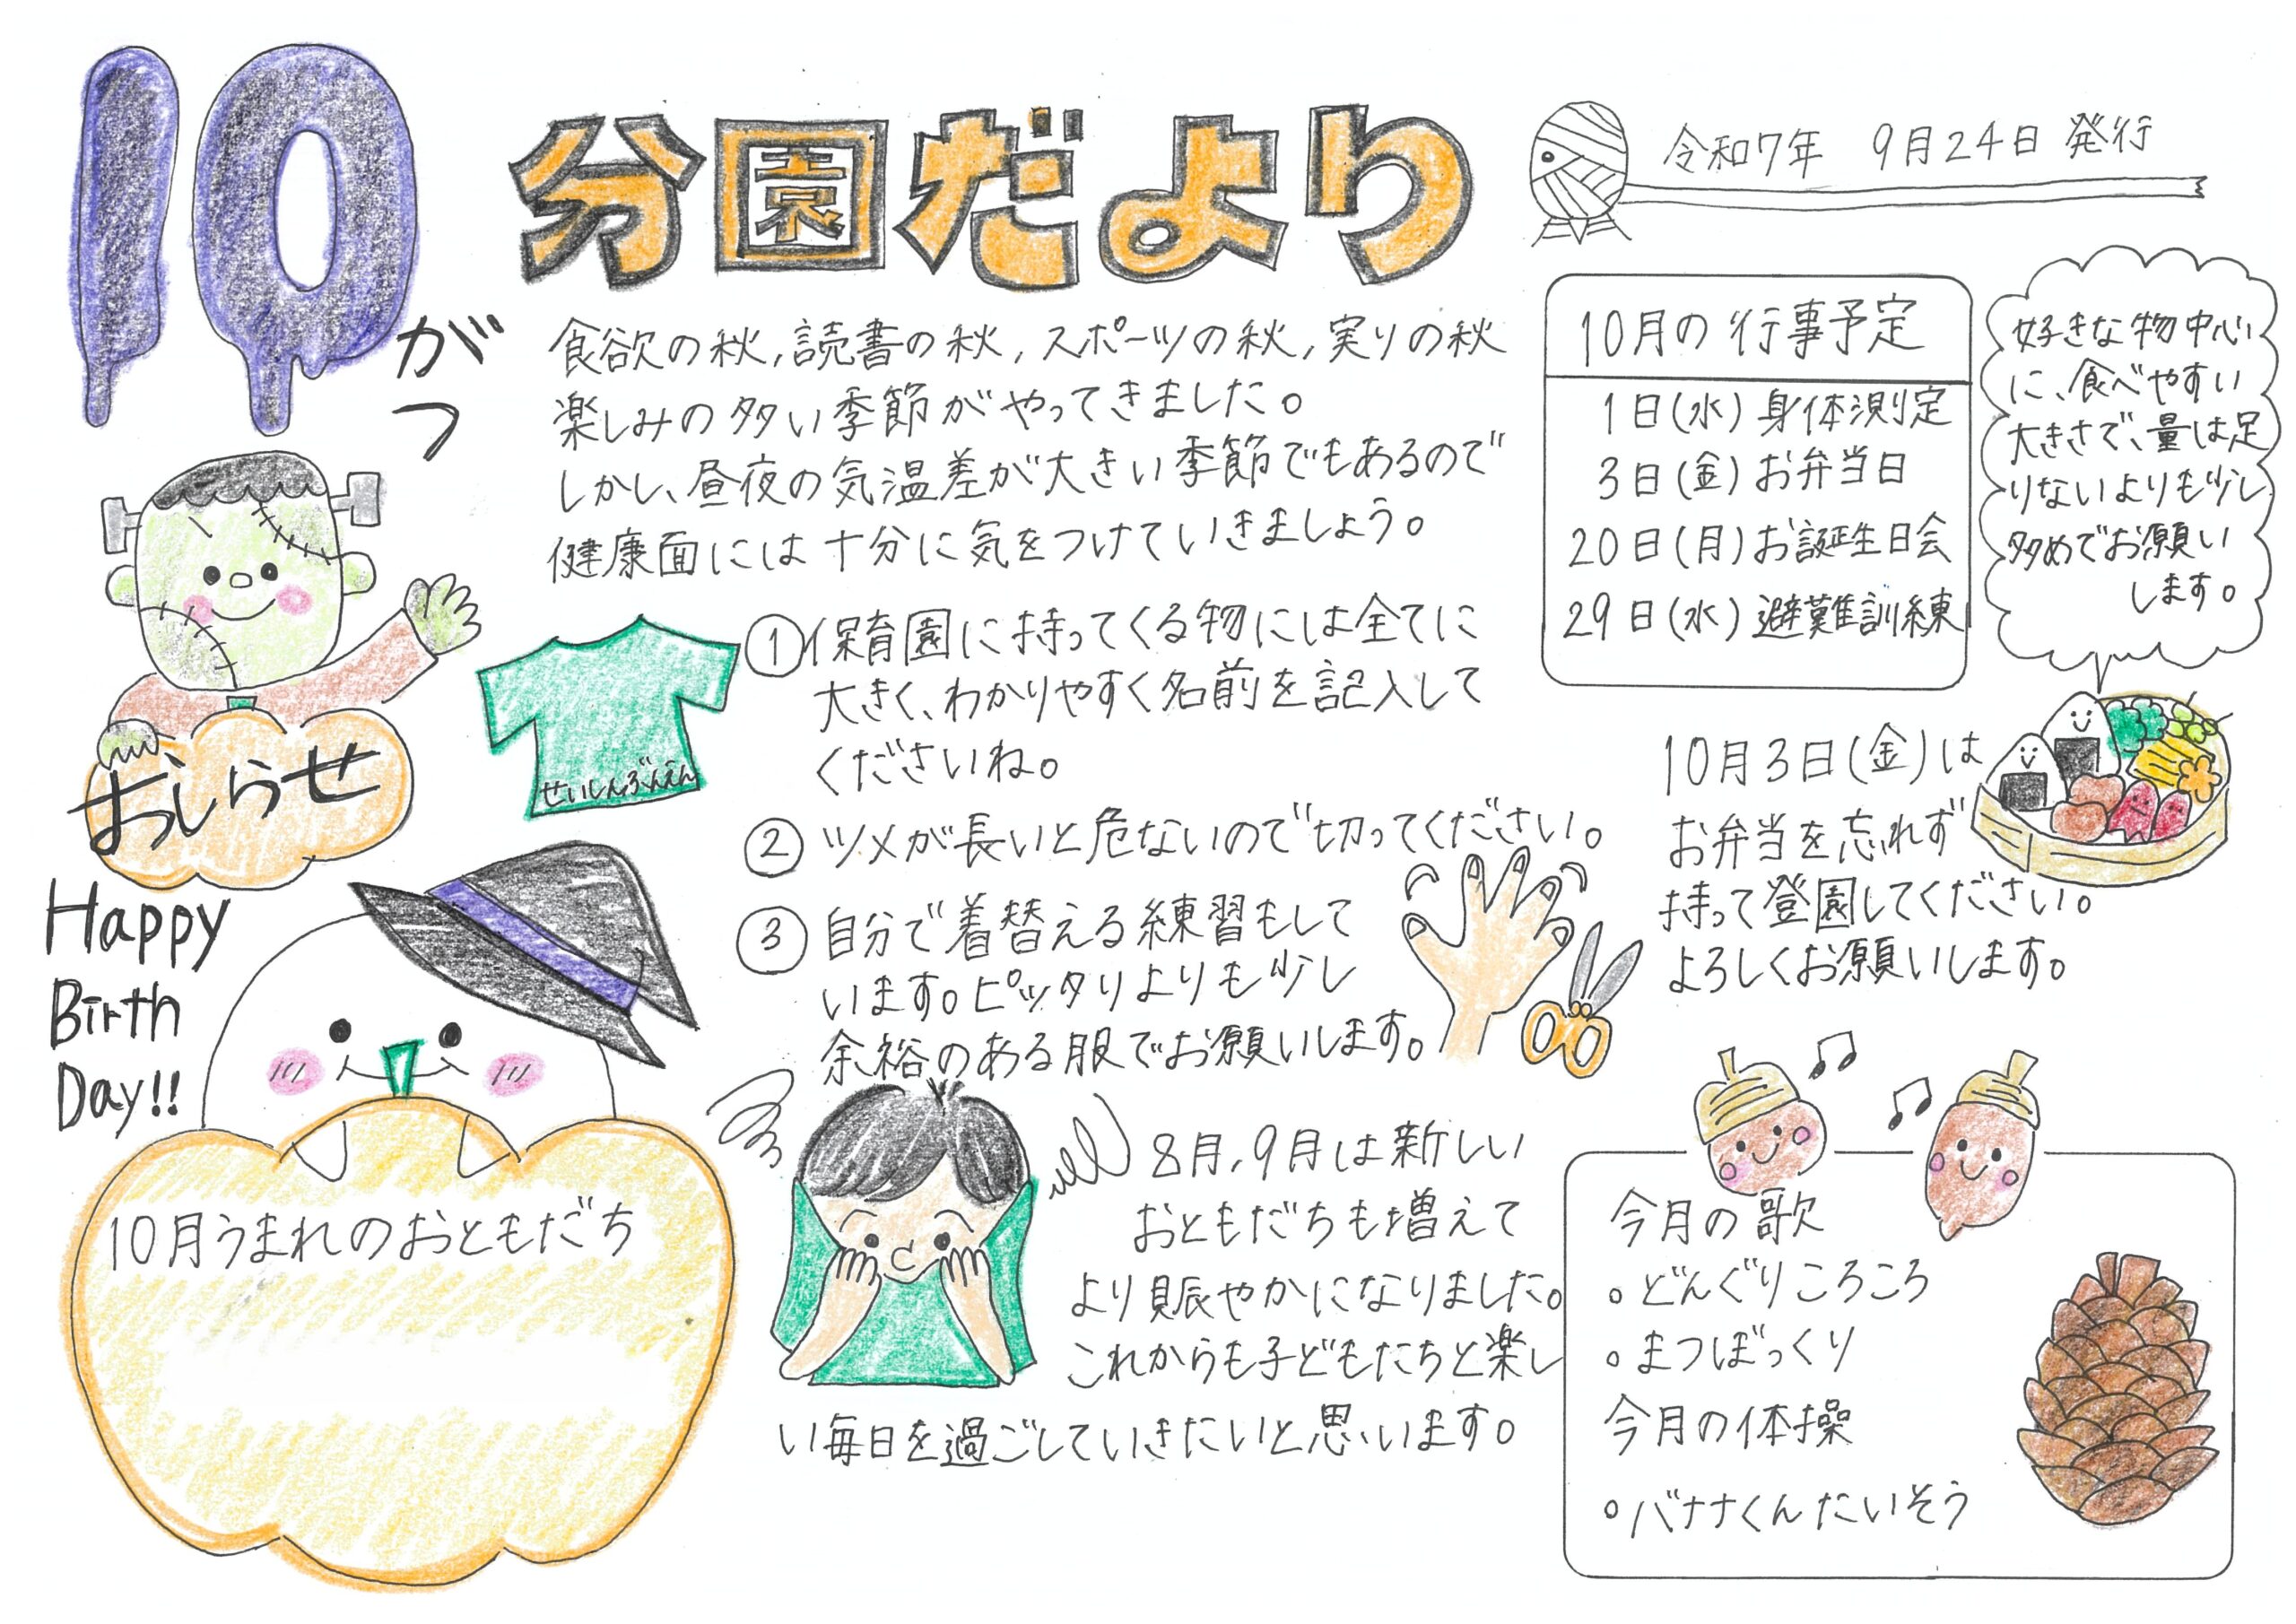 10がつ
分園だより
令和7年 9月24日 発行
食欲の秋,読書の秋,スポーツの秋,実りの秋
楽しみの多い季節がやってきました。
しかし、昼夜の気温差が大きい季節でもあるので
健康面には十分に気をつけていきましょう。
おしらせ
せいしんぶんえん
①保育園に持ってくる物には全てに
大きく、わかりやすく名前を記入して
くださいね。
②ツメが長いと危ないので切ってください。
③自分で着替える練習もして
います。ピッタリよりも少し
余裕のある服でお願いします。
8月,9月は新しい
おともだちも増えて
より賑やかになりました。
これからも子どもたちと楽し
い毎日を過ごしていきたいと思います。
Happy
Birth
Day!!
10月うまれのおともだち
10月の行事予定
1日(水)身体測定
3日(金)お弁当日
20日(月)お誕生日会
29日(水)避難訓練
好きな物中心
に、食べやすい
大きさで、量は足
りないよりも少し
多めでお願い
します。
10月3日(金)は
お弁当を忘れず
持って登園してください。
よろしくお願いします。
今月の歌
。どんぐりころころ
。まつぼっくり
今月の体操
。バナナくんたいそう